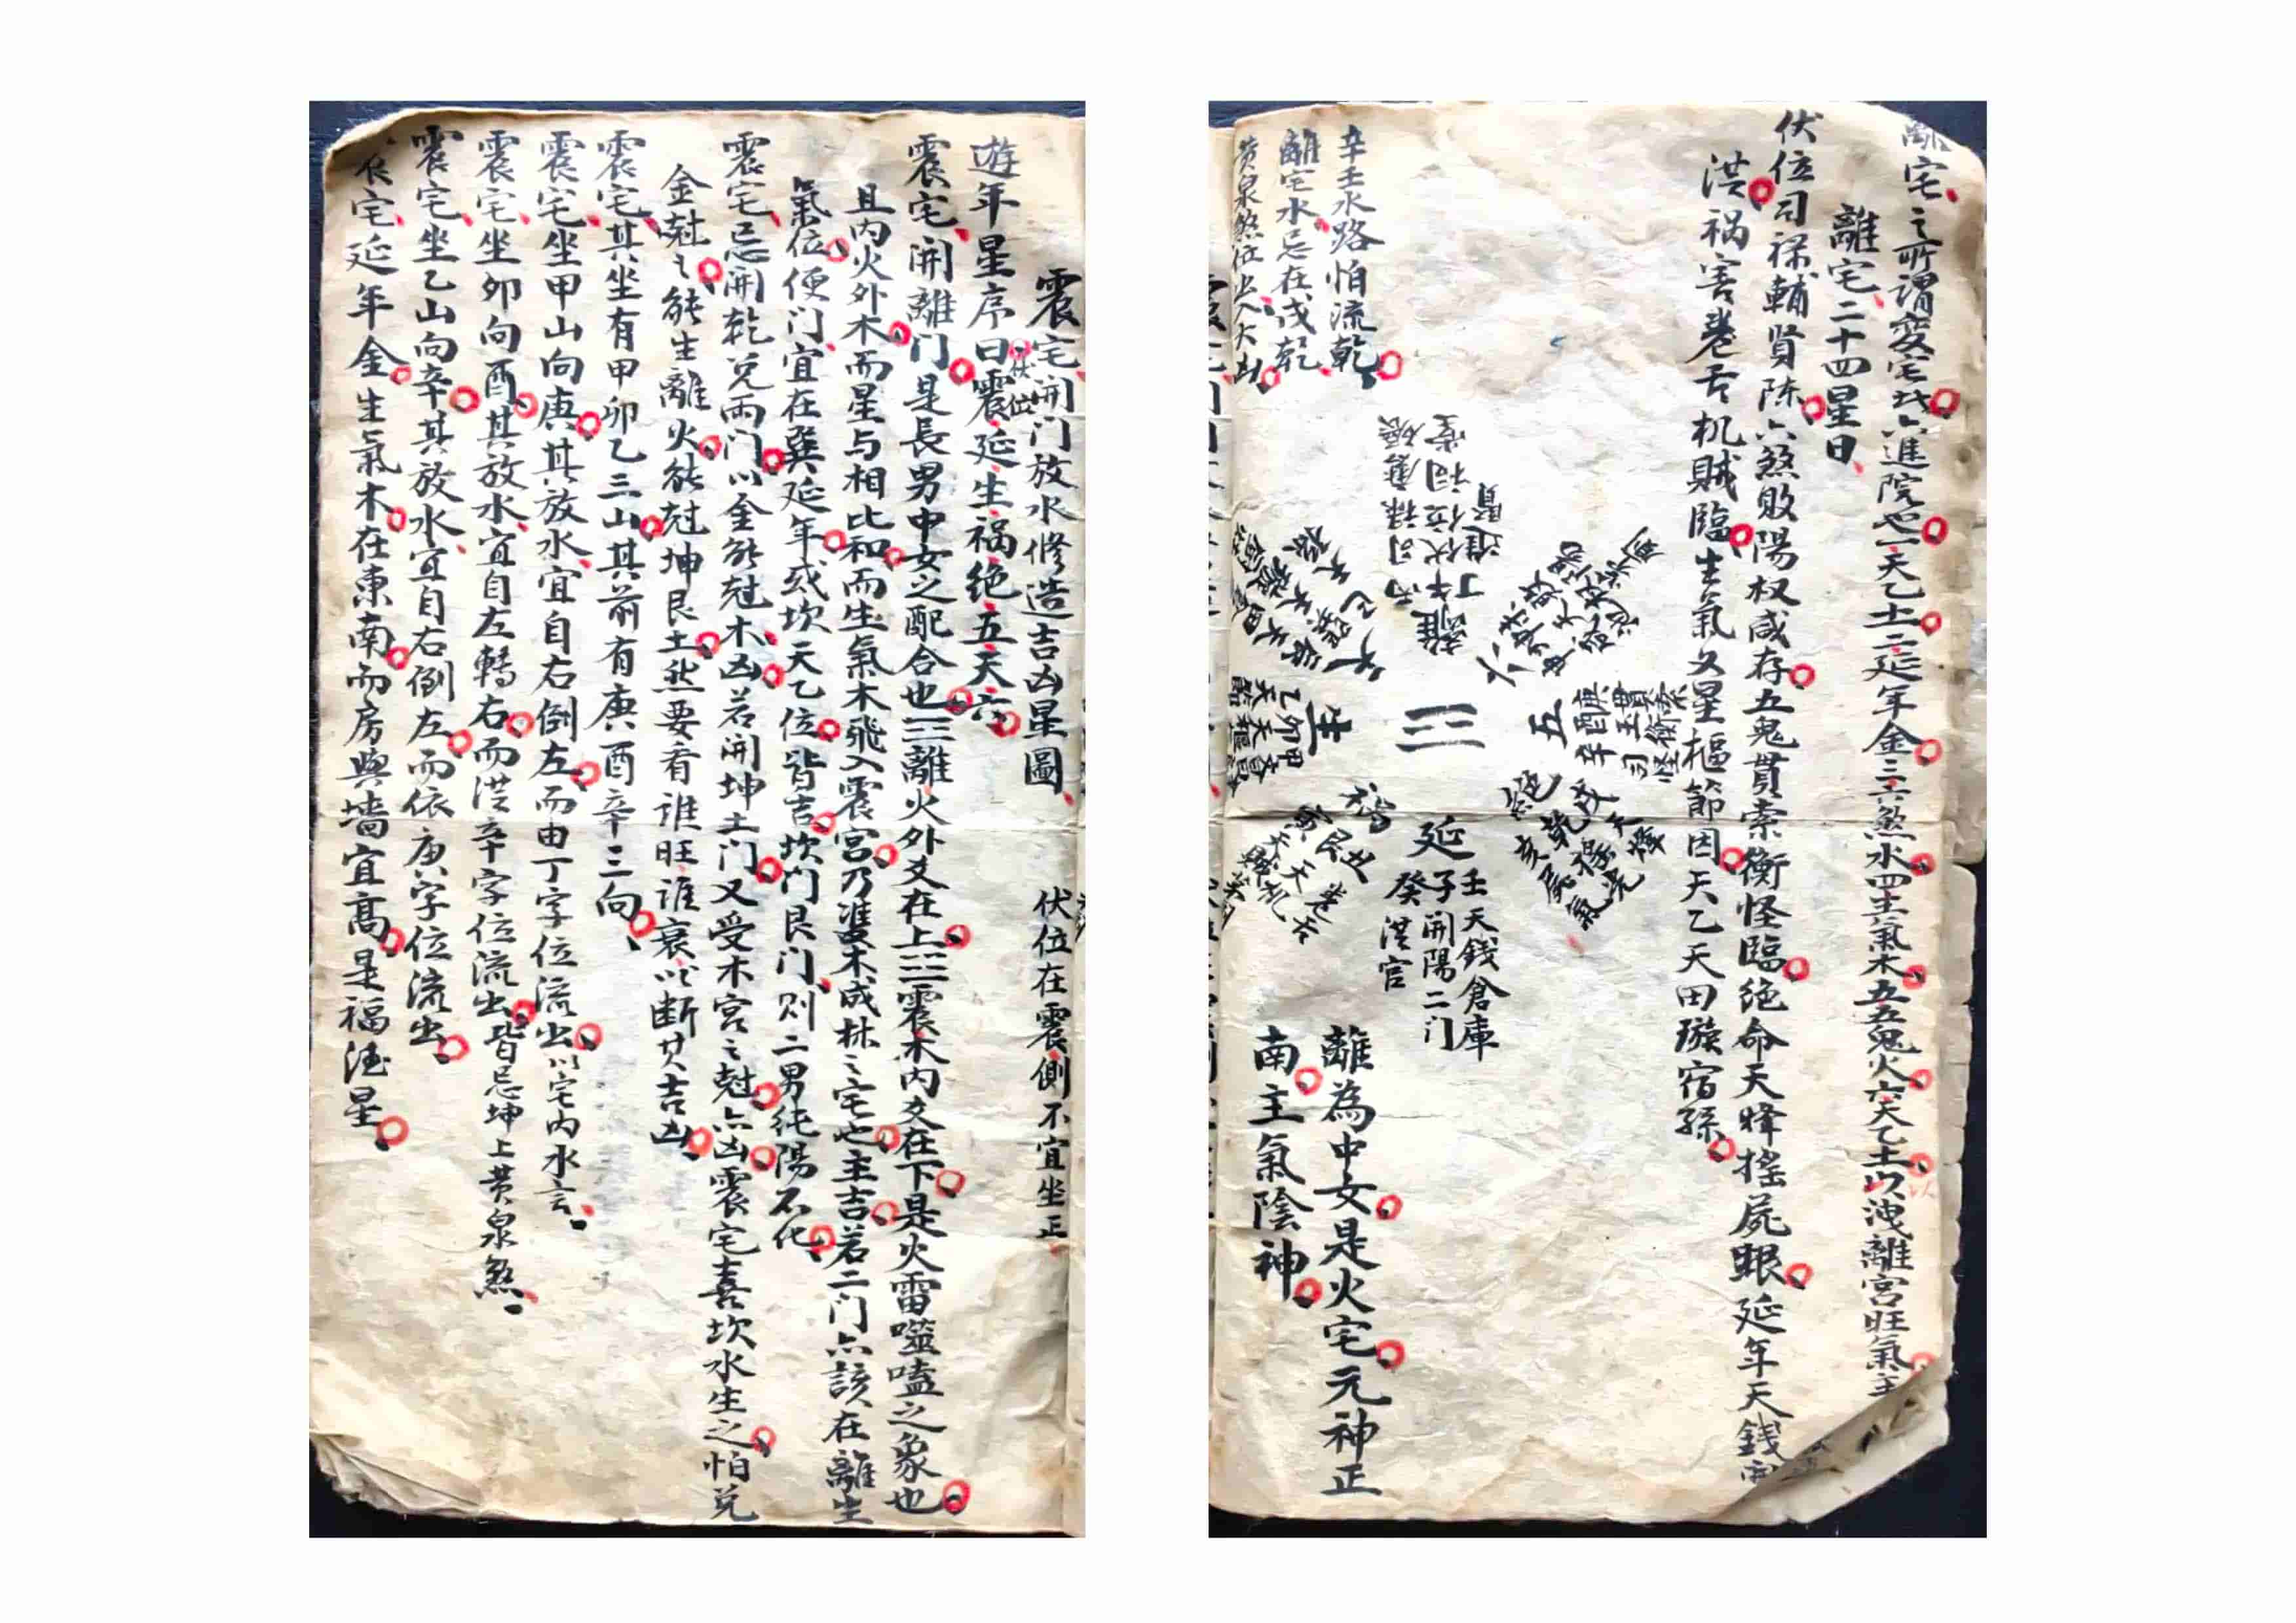 離宅之所謂變宅㦯六進院也一天乙土二延年金三六煞水四生氣木五五鬼火六天乙土以洩離宮旺氣主
離宅二十四星曰
伏位司祿輔賢陳六煞敗陽权咸存五鬼貫索衡怪臨絕命天蜂搖屍眼延年天錢開
洪禍害卷舌机賊臨生氣文星樞節因天乙天田璇宿孫
辛壬水路怕流乾
離宅水忌在戌乾
黃泉煞位出人大凶
離
丙午丁
司祿
伏位
進賢
六
五
庚酉辛
貫索
五衡
司怪
絕
戌乾亥
延
壬天錢倉庫
子開陽二门
癸洪官
禍
丑艮寅
卷舌
天机
天賊
生
甲卯乙
天樞
三
離為中女是火宅元神正
南主氣陰神
震宅開门放水修造吉凶星圖
伏位在震側不宜坐正
伏位
遊年星序曰震延生禍絕五天六
震宅開離门是長男中女之配合也三離火外爻在上三震木内爻在下是火雷噬嗑之象也
且内火外木而星与相比和而生氣木飛入震宮乃雙木成林之宅也主吉若二门六該在離生
氣位便门宜在巽延年或坎天乙位皆吉坎门艮门则二男純陽不化
震宅忌開乾兌兩门以金能尅木凶若開坤土门又受木宮之尅六凶震宅喜坎水生之怕兌
金尅之能生離火能尅坤艮土然要看谁旺谁衰以断其吉凶
震宅其坐有甲卯乙三山其前有庚酉辛三向
震宅坐甲山向庚其放水宜自右倒左而由丁字位流出以宅内水言
震宅坐卯向酉其放水宜自左轉右而洪辛字位流出皆忌坤上黄泉煞
震宅坐乙山向辛其放水宜自右倒左而依庚字位流出
宅延年金生氣木在東南而房與墻宜高是福德星